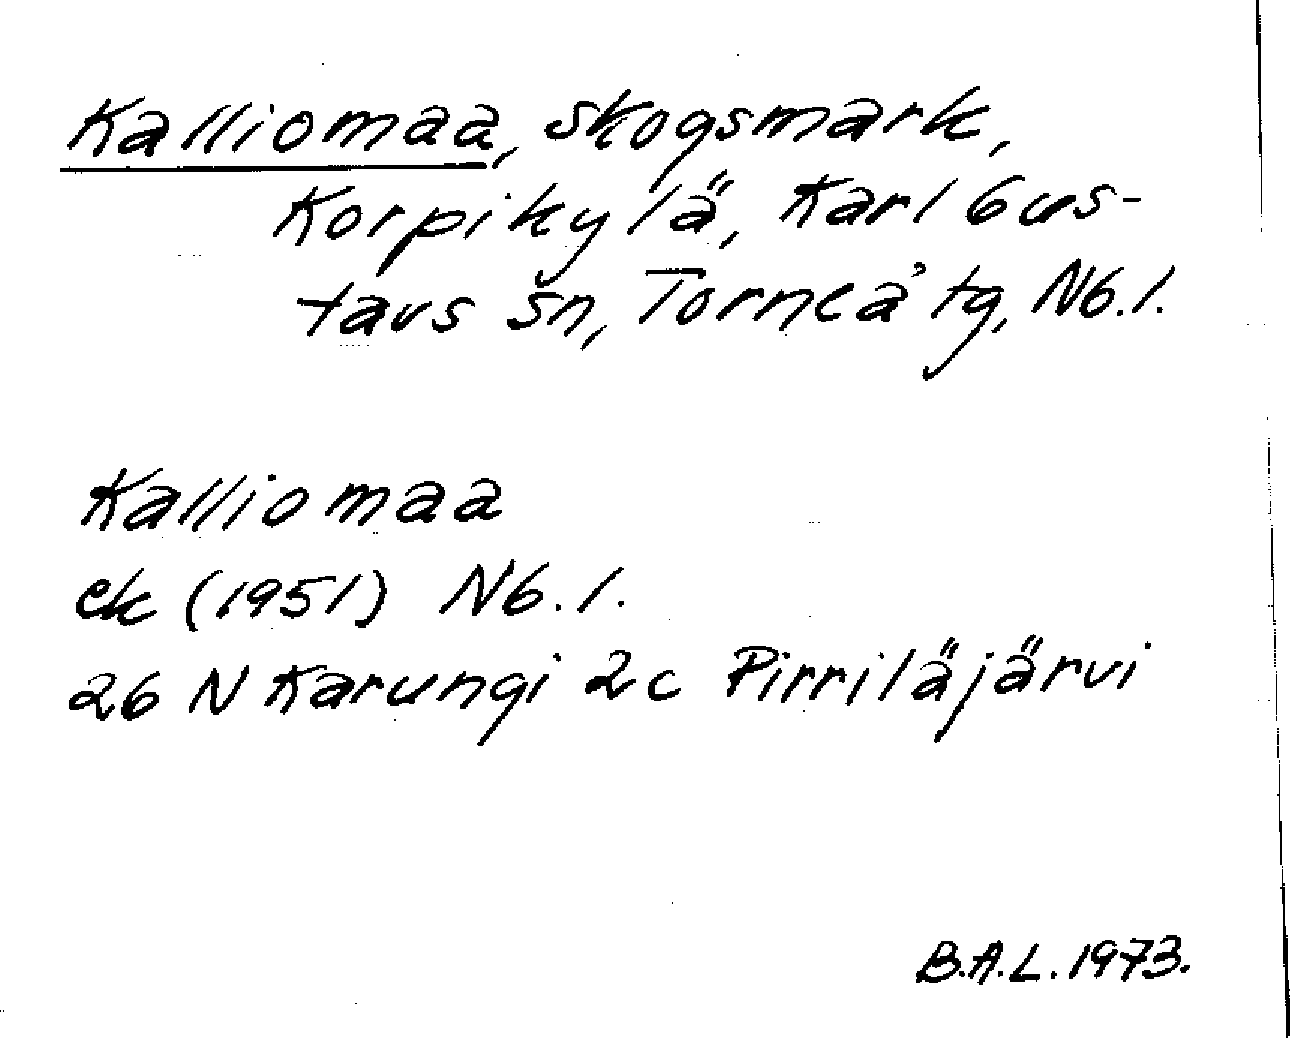 Kalliomaa, skogsmark,
Korpikylä, Karl Gus-
tavs sn, Torneå tg, Nb.l.
Kalliomaa
ek (1951) Nb.l.
26 N Karungi 2c Pirriläjärvi
B.A.L. 1973.